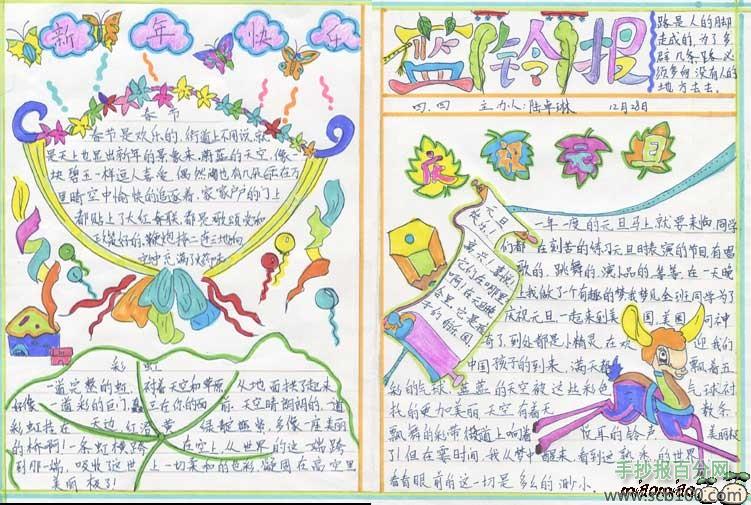 新年快乐
春节
春节是欢乐的,街道上不用说,就
是天上也显出新年的景象来,蔚蓝的天空,像一
块碧玉一样逗人喜爱,偶然间也有几朵
里晴空中愉快的追逐着,家家户户的门上
都贴上了大红春联,都是歌颂党和
彩虹
一道完整的虹,衬着天空和草原,从地面拱了起来
好像一道彩的巨门,矗立在你的面前,天空晴朗朗的,道
彩虹挂在天边,红橙黄绿靛蓝紫,多像一座美丽
的桥啊!一条虹横跨在空上,从世界的这一端跨
到那一端,吸收了这世上一切柔和的色彩,凝固在高空里
美丽极了!
蓝铃报
路是人的脚
走成的,为了多
群几条路,必
须多向没有人的
地方去走。
四.四
主办人:陆卓琳
12月28日
庆祝元旦
元旦
快乐!
一年一度的元旦马上就要来临,同学
们都在刻苦的练习元旦时表演的节目,有唱
歌的、跳舞的、演小品的,等等,在一天晚
上我做了个有趣的梦,我梦见全班同学为了
庆祝元旦一起来到美国,美国可神
奇了,到处都是小精灵,在欢迎我们
中国孩子的到来,满天都飘着五
彩的气球,蓝蓝的天空被这些彩色气球衬
托的更加美丽,天空有着无数条
飘舞的彩带,街道上响着悦耳的铃声,美丽极
了!但在霎时间,我从梦中醒来,看到这乳米的世界
看看眼前的这一切是多么的渺小。
手抄报百分网
www.scb100.com